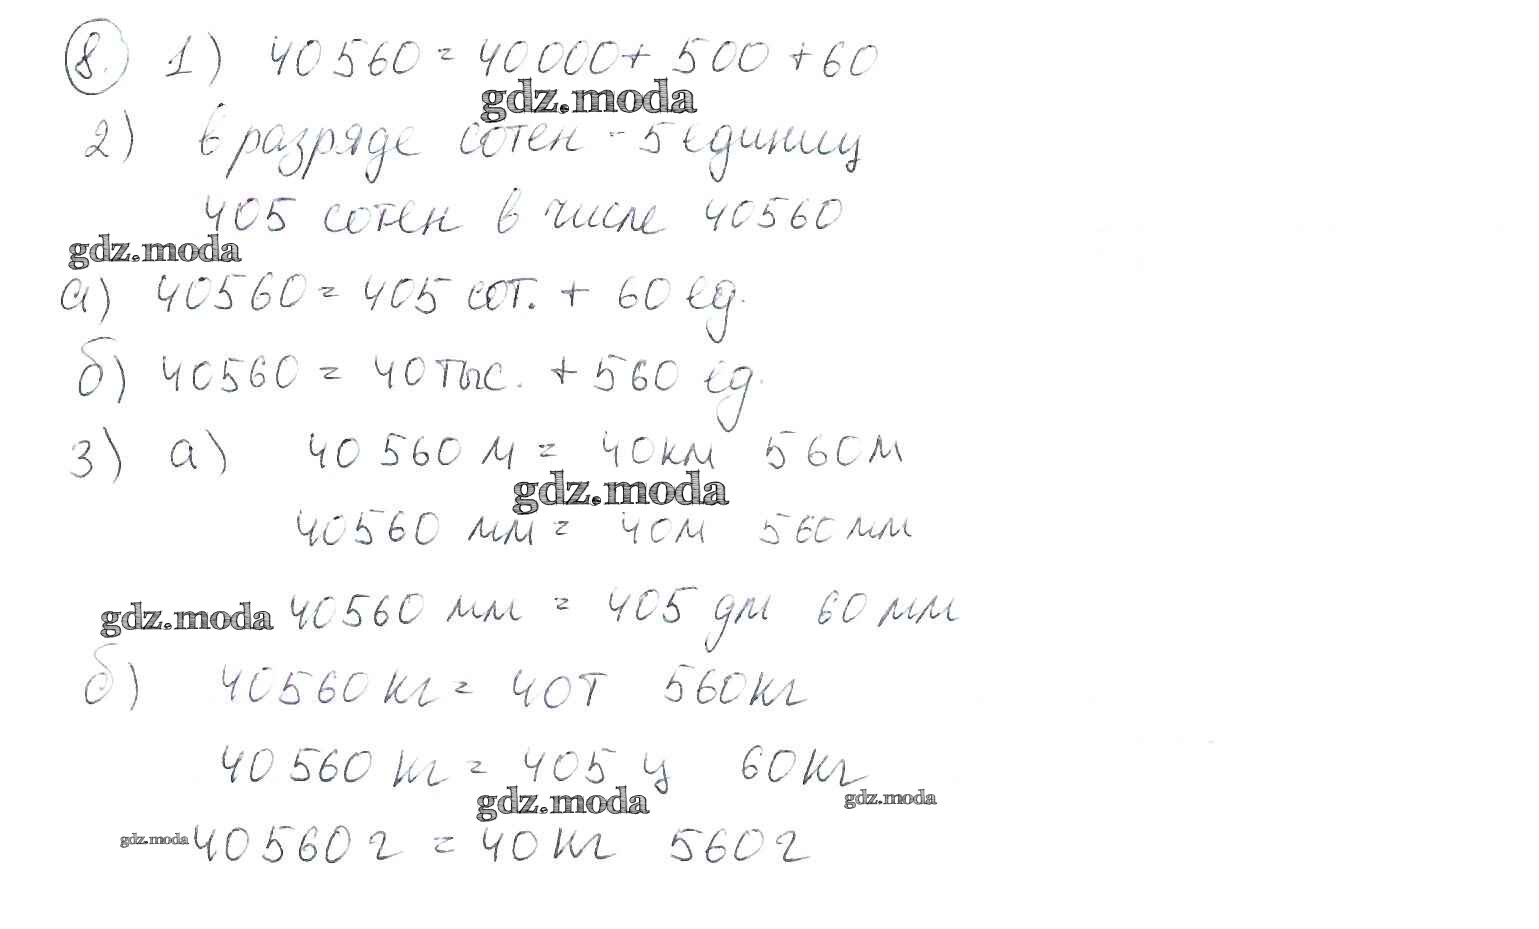 8. 1) 40560 = 40000 + 500 + 60
gdz.moda
2) В разряде сотен - 5 единиц
405 сотен в числе 40560
gdz.moda
а) 40560 = 405 сот. + 60 ед.
б) 40560 = 40 тыс. + 560 ед.
3) а) 40 560 м = 40 км 560 м
gdz.moda
40560 мм = 40 м 560 мм
gdz.moda 40560 мм = 405 дм 60 мм
б) 40560 кг = 40 т 560 кг
40 560 кг = 405 ц 60 кг
gdz.moda gdz.moda
gdz.moda 40 560 г = 40 кг 560 г